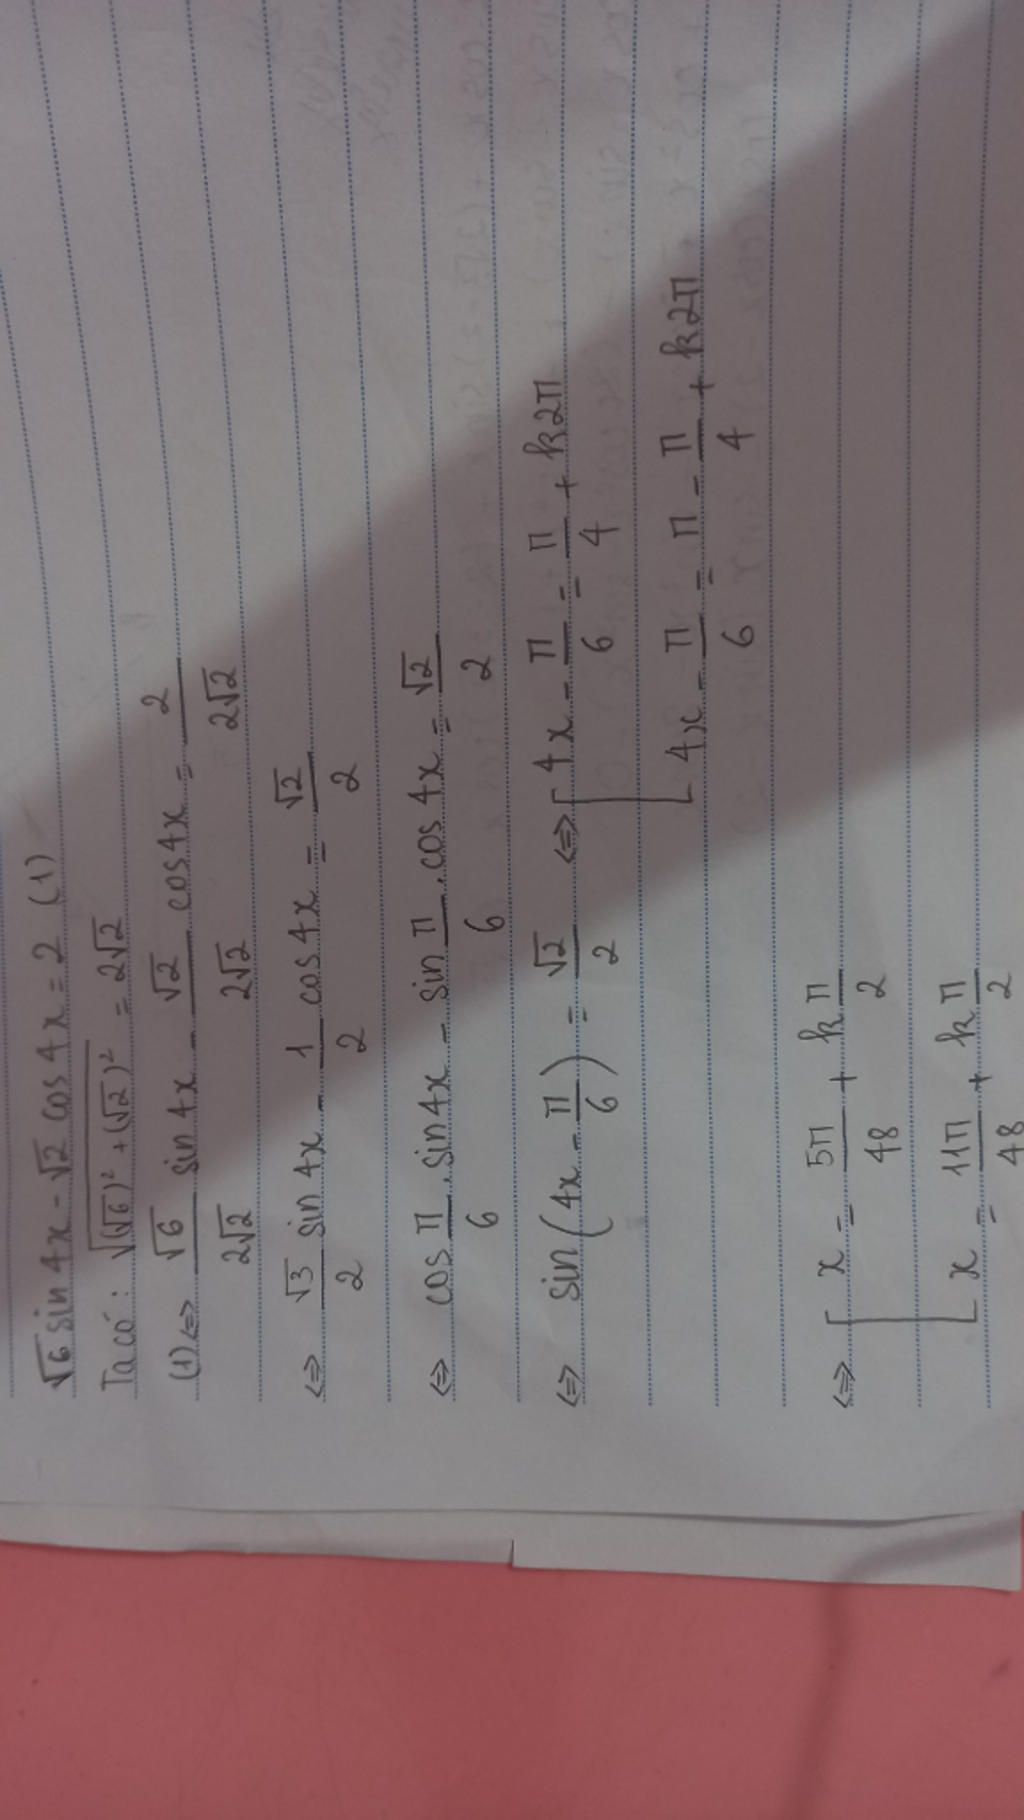 √6 sin 4x - √2 cos 4x = 2 (1)
Ta có: √((√6)² + (√2)²) = 2√2
(1) <=> √6/2√2 sin 4x - √2/2√2 cos 4x = 2/2√2
<=> √3/2 sin 4x - 1/2 cos 4x = √2/2
<=> cos π/6 . sin 4x - sin π/6 . cos 4x = √2/2
<=> sin(4x - π/6) = √2/2 <=> [ 4x - π/6 = π/4 + k2π
[ 4x - π/6 = π - π/4 + k2π
<=> [ x = 5π/48 + k π/2
[ x = 11π/48 + k π/2